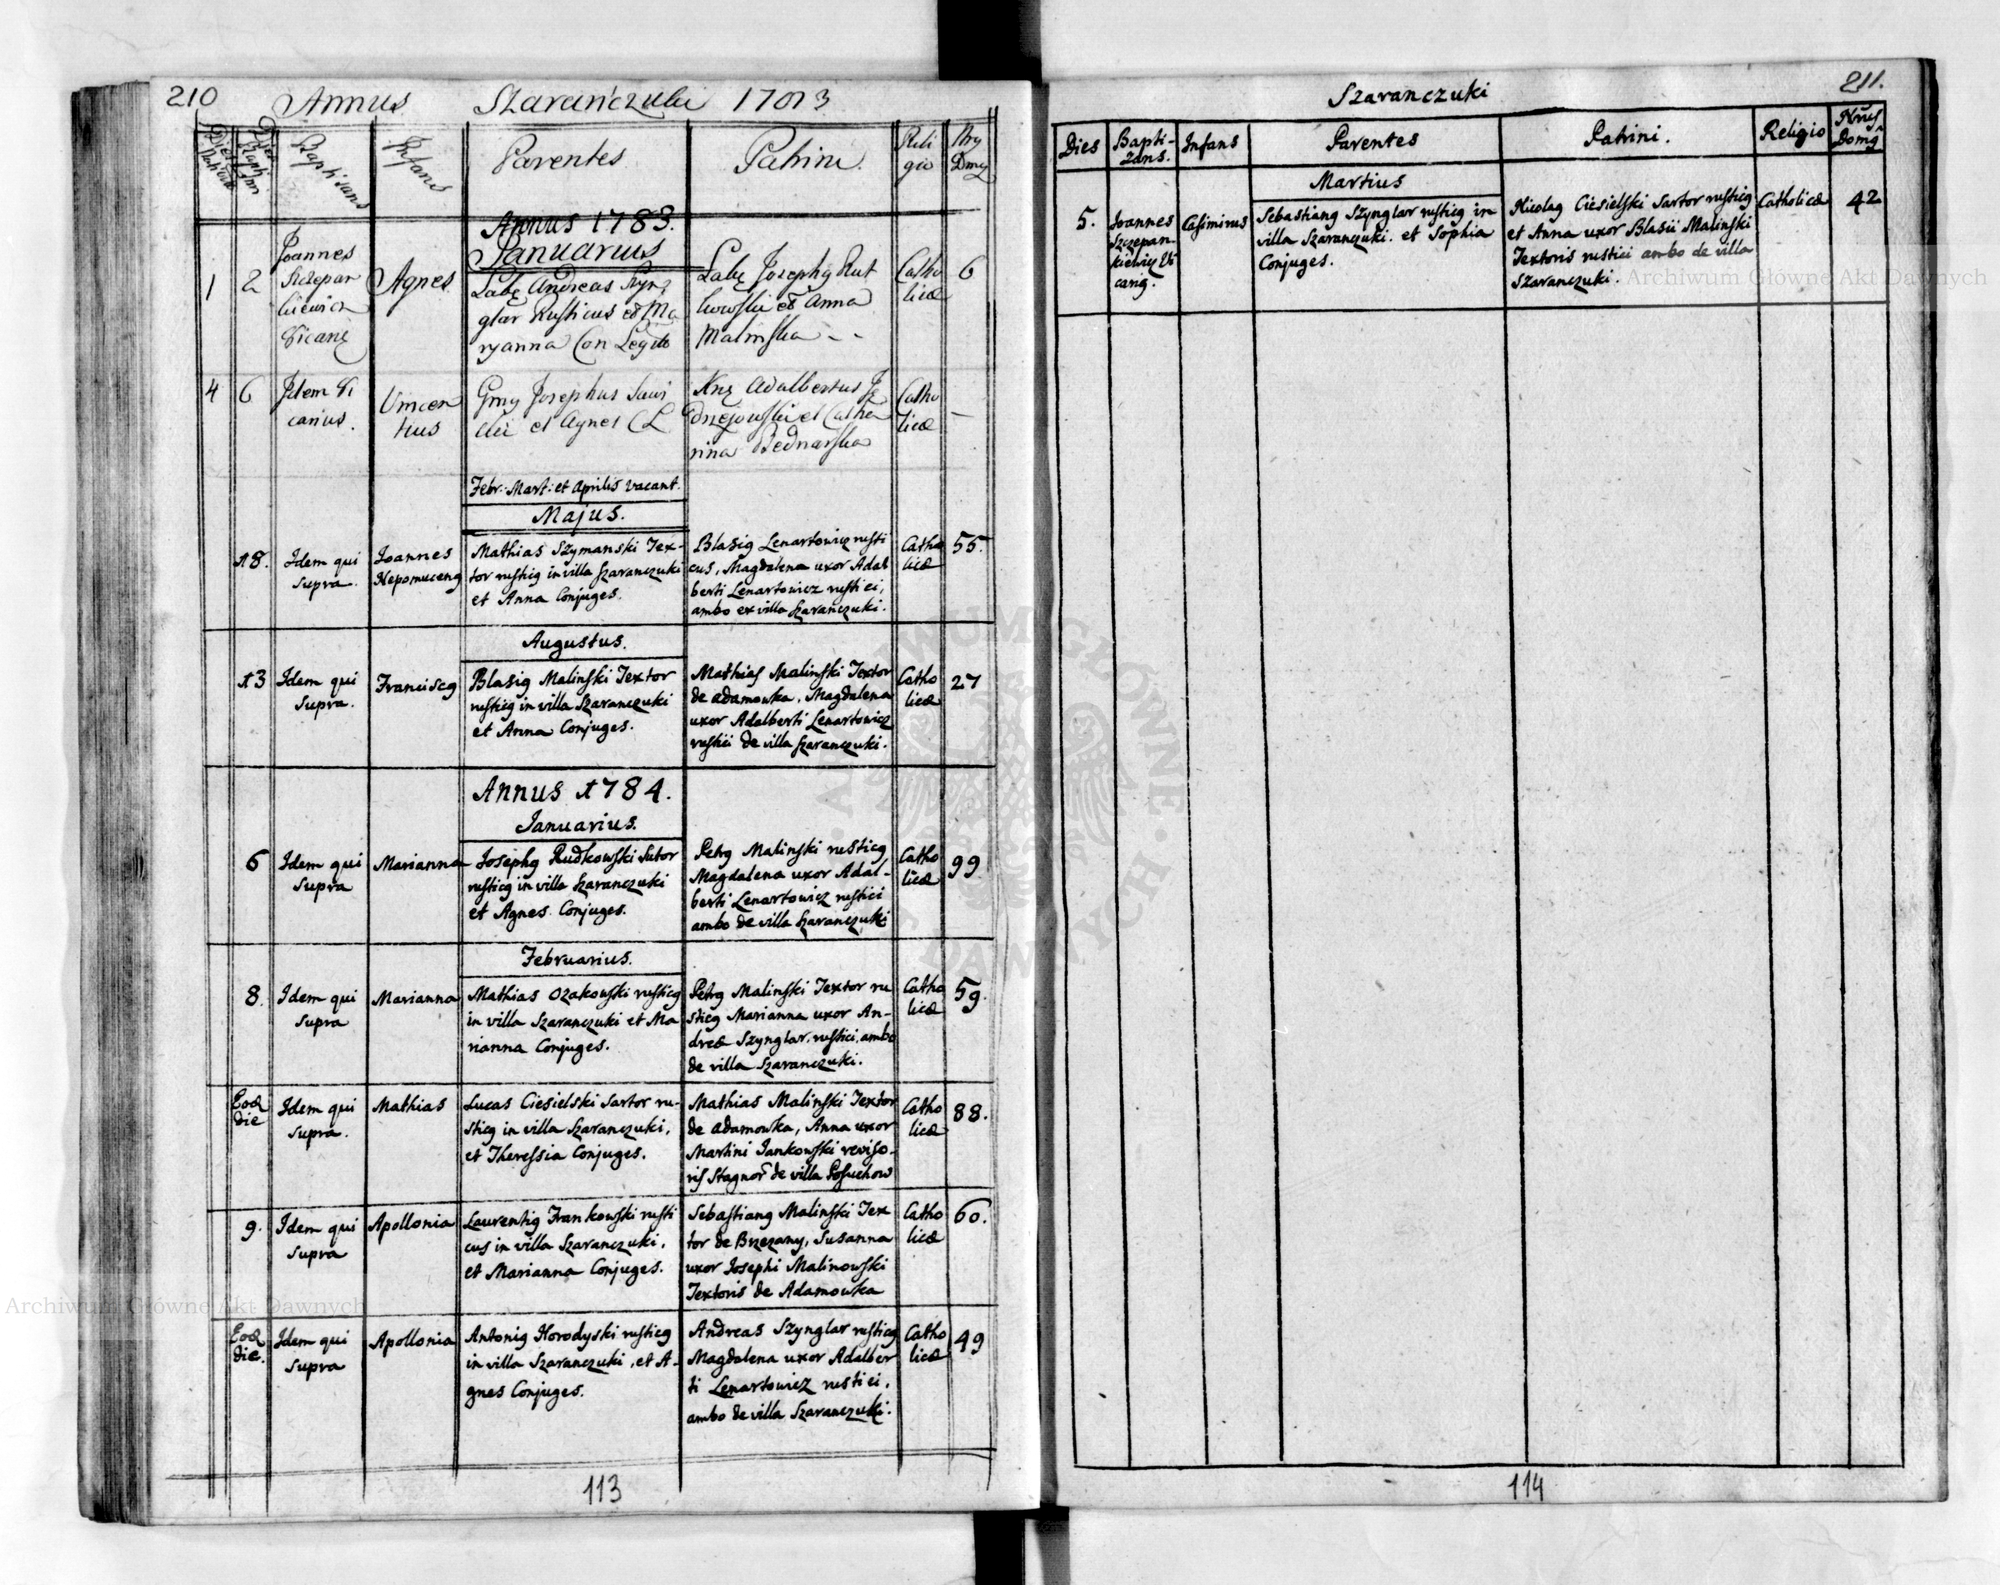 210
Annus Szarańczuki 1783
Dies
Baptisans
Infans
Parentes
Patrini.
Reli
gio
Nrų
Domų
Annus 1783.
Januarius
1
2
Joannes
Szczepan
kiewicz
Vicarių
Agnes
Labų Andreas Szyn
glar Rusticus et Ma
ryanna Con Legit
Labų Josephų Rut
kowski et Anna
Malinska - -
Catho
licæ
6
4
6
Idem Vi
carius.
Vincen
tius
Josephus Sawi
cki et Agnes C L
Adalbertus Ję
drzejowski et Catha
rina Bednarska
Catho
licæ
–
Febr: Mart: et Aprilis vacant.
Majus.
18.
Idem qui
supra.
Joannes
Nepomucenų
Mathias Szymanski Tex-
tor rusticų in villa Szaranczuki
et Anna Conjuges.
Blasių Lenartowicz rusti
cus, Magdalena uxor Adal
berti Lenartowicz rustici,
ambo ex villa Szaranczuki.
Catho
licæ
55.
Augustus.
13
Idem qui
supra.
Franciscų
Blasių Malinski Textor
rusticų in villa Szaranczuki
et Anna Conjuges.
Mathias Malinski Textor
de Adamowka, Magdalena
uxor Adalberti Lenartowicz
rustici de villa Szaranczuki.
Catho
licæ
27
Annus 1784.
Januarius.
6
Idem qui
supra
Marianna
Josephų Rudkowski Sutor
rusticų in villa Szaranczuki
et Agnes Conjuges.
Petrų Malinski rusticų
Magdalena uxor Adal-
berti Lenartowicz rustici
ambo de villa Szaranczuki
Catho
licæ
99
Februarius.
8.
Idem qui
supra
Marianna
Mathias Ozakowski rusticų
in villa Szaranczuki et Ma
rianna Conjuges.
Petrų Malinski Textor ru
sticų Marianna uxor An-
dreæ Szynglar rustici, ambo
de villa Szaranczuki.
Catho
licæ
59.
Eod
die
Idem qui
supra.
Mathias
Lucas Ciesielski Sartor ru-
sticų in villa Szaranczuki,
et Theressia Conjuges.
Mathias Malinski Textor
de Adamowka, Anna uxor
Martini Jankowski reviso-
ris Stagnor de villa Posuchow
Catho
licæ
88.
9.
Idem qui
supra
Apollonia
Laurentių Frankowski rusti
cus in villa Szaranczuki,
et Marianna Conjuges.
Sebastianų Malinski Tex
tor de Brzezany, Susanna
uxor Josephi Malinowski
Textoris de Adamowka
Catho
licæ
60.
Eod
die.
Idem qui
supra
Apollonia
Antonių Horodyski rusticų
in villa Szaranczuki, et A-
gnes Conjuges.
Andreas Szynglar rusticų
Magdalena uxor Adalber
ti Lenartowicz rustici,
ambo de villa Szaranczuki.
Catho
licæ
49
113
211.
Szaranczuki
Dies
Bapti-
zans.
Infans
Parentes
Patrini.
Religio
Nrus
Domų
Martius
5.
Joannes
Szczepan-
kiewicz Vi
carių.
Casimirus
Sebastianų Szynglar rusticų in
villa Szaranczuki. et Sophia
Conjuges.
Nicolaų Ciesielski Sartor rusticų
et Anna uxor Blasii Malinski
Textoris rustici ambo de villa
Szaranczuki.
Catholicæ
42
114
Archiwum Główne Akt Dawnych
Archiwum Główne Akt Dawnych
ARCHIWUM GŁÓWNE AKT DAWNYCH